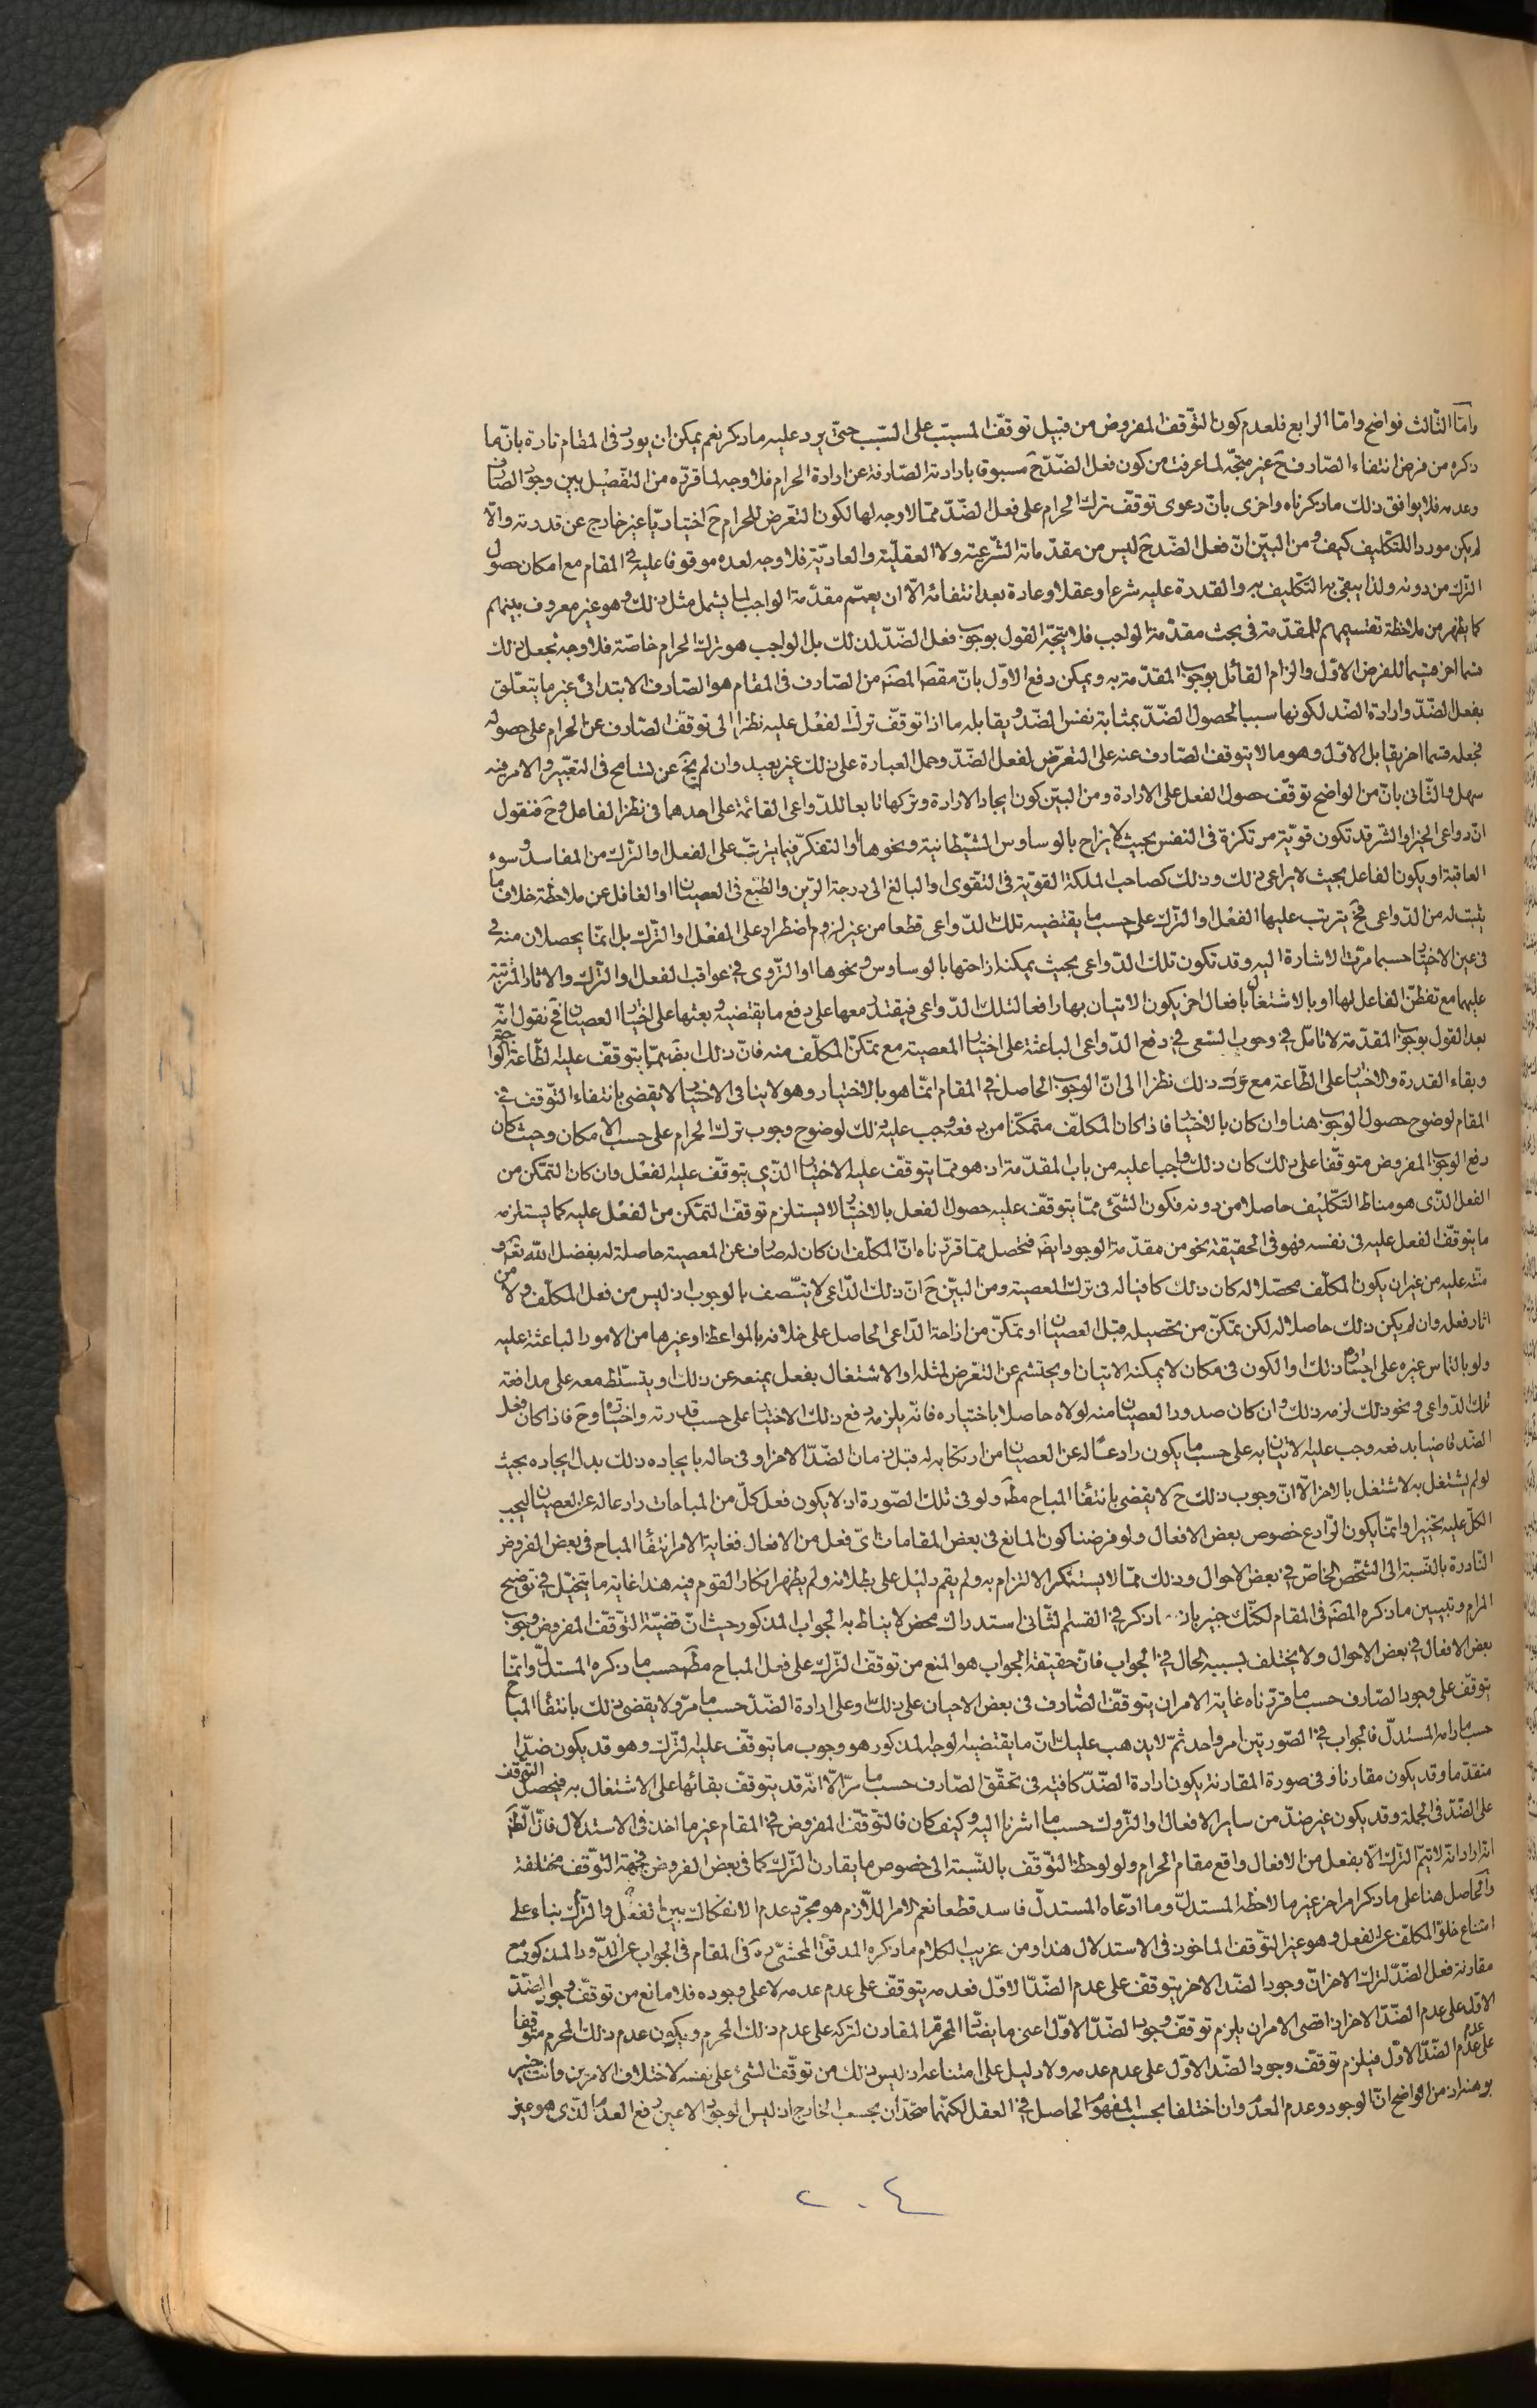 وامّا الثّالث فواضح وامّا الرابع فلعدم كون التّوقّف المفروض من قبيل توقّف المسبّب على السّبب حتّى يرد عليه ما ذكر نعم يمكن ان يورد فى المقام تارة بانّ ما
ذكره من فرض انتفاء الصّارف ح غير متّجه لما عرفت من كون فعل الضّدّ ح مسبوقا بارادته الصّارفة عن ارادة الحرام فلا وجه لما قرّره من التّفصيل بين وجود الصّارف
وعدمه فلا يوافق ذلك ما ذكرناه واخرى بانّ دعوى توقّف ترك الحرام على فعل الضّدّ ممّا لا وجه لها لكون التّعرّض للحرام ح اختياريّا غير خارج عن قدرته والّا
لم يكن موردا للتّكليف كيف ومن البيّن انّ فعل الضّدّ ح ليس من مقدّماته الشّرعيّة ولا العقليّة والعاديّة فلا وجه لعدّه موقوفا عليه فى المقام مع امكان حصول
التّرك من دونه ولذا يبقى به التّكليف به والقدرة عليه شرعا وعقلا وعادة بعد انتفائه الّا ان يعمّم مقدّمة الواجب لما يشمل مثل ذلك وهو غير معروف بينهم
كما يظهر من ملاحظة تقسيمهم للمقدّمة فى بحث مقدّمة الواجب فلا يتّجه القول بوجوب فعل الضّدّ لذلك بل الواجب هو ترك الحرام خاصّة فلا وجه لجعل ذلك
قسما اخر قسيما للفرض الاوّل والزام القائل بوجوب المقدّمة به ويمكن دفع الاوّل بانّ مقصَ المصنَ من الصّارف فى المقام هو الصّارف الابتدائى غير ما يتعلّق
بفعل الضّدّ وارادة الضّد لكونها سببا لحصول الضّدّ بمثابة نفس الضّدّ ويقابله ما اذا توقّف ترك الفعل عليه نظرا الى توقّف الصّارف عن الحرام على حصوله
فجعله قسما اخر يقابل الاوّل وهو ما لا يتوقّف الصّارف عنه على التّعرّض لفعل الضّدّ وحمل العبارة على ذلك غير بعيد وان لم يخ عن تسامح فى التعبير والامر فيه
سهل والثّانى بانّ من الواضح توقّف حصول الفعل على الارادة ومن البيّن كون ايجاد الارادة وتركها تابعا للدّواعى القائمة على احدهما فى نظر الفاعل وح فنقول
انّ دواعى الخير والشّر قد تكون قويّة مرتكزة فى النفس بحيث لا يزاح بالوساوس الشّيطانية ونحوها او التفكّر فيما يترتّب على الفعل او التّرك من المفاسد وسوء
العاقبة او يكون الفاعل بحيث لا يراعى ذلك وذلك كصاحب الملكة القويّة فى التّقوى او البالغ الى درجة الرّين والطّبع فى العصيان او الغافل عن ملاحظة خلاف ما
يثبت له من الدّواعى فح يترتب عليها الفعل او التّرك على حسب ما يقتضيه تلك الدّواعى قطعا من غير لزوم اضطرار على الفعل او التّرك بل انّما يحصلان منه فى
فى عين الاختيار حسبما مرّت الاشارة اليه وقد تكون تلك الدّواعى بحيث يمكنه ازاحتها بالوساوس ونحوها او التّروّى فى عواقب الفعل او التّرك والاثار المترتبة
عليهما مع تفطّن الفاعل لها او بالاشتغال بافعال اخر يكون الاتيان بها رافعا لتلك الدّواعى فيقتدر معها على دفع ما يقتضيه وبعثها على اختيار العصيان فح نقول انّه
بعد القول بوجوب المقدّمة لا تامّل فى وجوب السّعى فى دفع الدّواعى الباعثة على اختيار المعصية مع تمكّن المكلّف منه فانّ ذلك ايضَ ممّا يتوقّف عليه الطّاعة
وبقاء القدرة والاختيار على الطّاعة مع ترك ذلك نظرا الى انّ الوجوب الحاصل فى المقام انّما هو بالاختيار وهو لا ينافى الاختيار لا يقضى بانتفاء التّوقّف فى
المقام لوضوح حصول الوجوب هنا وان كان بالاختيار فاذا كان المكلّف متمكّنا من دفعه وجب عليه ذلك لوضوح وجوب ترك الحرام على حسب الامكان وحيث كان
دفع الوجوب المفروض متوقّفا على ذلك كان ذلك واجبا عليه من باب المقدّمة اذ هو ممّا يتوقّف عليه الاختيار الّذى يتوقّف عليه الفعل وان كان التمكّن من
الفعل الّذى هو مناط التّكليف حاصلا من دونه فكون الشّئ ممّا يتوقّف عليه حصول الفعل بالاختيار لا يستلزم توقّف التّمكّن من الفعل عليه كما يستلزمه
ما يتوقّف الفعل عليه فى نفسه فهو فى الحقيقة نحو من مقدّمة الوجود ايضَ فتحصل ممّا قرّرناه انّ المكلّف ان كان له صارف عن المعصية حاصلة له بفضل اللّه تعَ و
منّه عليه من غير ان يكون المكلّف محصّلا له كان ذلك كافيا له فى ترك المعصية ومن البيّن ح انّ ذلك الدّاعى لا يتّصف بالوجوب اذ ليس من فعل المكلّف ولا من
اثار فعله وان لم يكن ذلك حاصلا له لكن يمكّن من تحصيله قبل العصيان او تمكّن من ازاحة الدّاعى الحاصل على خلافه بالمواعظ او غيرها من الامور الباعثة عليه
ولو بالتماس غيره على اجباره ذلك او الكون فى مكان لا يمكنه الاتيان او يحتشم عن التعّرض لمثله او الاشتغال بفعل يمنعه عن ذلك او يتسلّط معه على مدافعة
تلك الدّواعى ونحو ذلك لزمه ذلك وان كان صدور العصيان منه لولاه حاصلا باختياره فانّه يلزمه دفع ذلك الاختيار على حسب قدرته واختياره وح فاذا كان فعل
الضّد قاضيا بدفعه وجب عليه الاتيان به على حسب ما يكون رادعا له عن العصيان من ارتكابه له قبل زمان الضّدّ الاخر او فى حاله بايجاده ذلك بدل ايجاده بحيث
لو لم يشتغل به لاشتغل بالاخر الّا انّ وجوب ذلك ح لا يقضى بانتفاء المباح مطَ ولو فى تلك الصّورة اذ لا يكون فعل كلّ من المباحات رادعا له عن العصيان ليجب
الكلّ عليه تخييرا وانّما يكون الرّادع خصوص بعض الافعال ولو فرضنا كون المانع فى بعض المقامات اىّ فعل من الافعال فغاية الامر انتفاء المباح فى بعض الفروض
النّادرة بالنّسبة الى الشّخص الخاصّ فى بعض الاحوال وذلك ممّا لا يستنكر الالتزام به ولم يقم دليل على بطلانه ولم يظهر انكار القوم فيه هذا غاية ما يتخيّل فى توضيح
المرام وتبيين ما ذكره المصَ فى المقام لكنّك خبير بان ما ذكر فى القسم الثّانى استدراك محض لا يناط به الجواب المذكور حيث انّ قضيّة التّوقّف المفروض وجوب
بعض الافعال فى بعض الاحوال ولا يختلف بسببه الحال فى الجواب فانّ حقيقة الجواب هو المنع من توقّف التّرك على فعل المباح مطَ حسب ما ذكره المستدلّ وانّما
يتوقّف على وجود الصّارف حسب ما قرّرناه غاية الامر ان يتوقّف الصّارف فى بعض الاحيان على ذلك وعلى ارادة الضّدّ حسب ما مرّ ولا يقضى ذلك بانتفاء المباح
حسب ما رامه المستدلّ فالجواب فى الصّورتين امر واحد ثمّ لا يذهب عليك انّ ما يقتضيه الوجه المذكور هو وجوب ما يتوقّف عليه التّرك وهو قد يكون ضدّا
متقدّما وقد يكون مقارنا وفى صورة المقارنة يكون ارادة الضّدّ كافية فى تحقّق الصّارف حسب ما مرّ الّا انّه قد يتوقّف بقائها على الاشتغال به فيحصل التوقّف
على الضّدّ فى الجملة وقد يكون غير ضدّ من ساير الافعال والتّروك حسب ما اشرنا اليه وكيف كان فالتّوقّف المفروض فى المقام غير ما اخذ فى الاستدلال فانّ الظَ
انّه اراد انّه لا يتمّ التّرك الّا بفعل من الافعال واقع مقام الحرام ولو لوحظ التّوقّف بالنّسبة الى خصوص ما يقارن التّرك كما فى بعض الفروض فجهة التّوقّف مختلفة
والحاصل هنا على ما ذكر امر اخر غير ما لاحظه المستدلّ وما ادّعاه المستدلّ فاسد قطعا نعم الامر اللّازم هو مجرّد عدم الانفكاك بين الفعل والتّرك بناء على
امتناع خلوّ المكلّف عن الفعل وهو غير التّوقّف الماخوذ فى الاستدلال هذا ومن غريب الكلام ما ذكره المدقّق المحشّى ره فى المقام فى الجواب عن الدّور المذكور مع
مقارنة فعل الضّدّ لترك الاخر انّ وجود الضّد الاخر يتوقّف على عدم الضّدّ الاوّل فعدمه يتوقّف على عدم عدمه لا على وجوده فلا مانع من توقّف وجود الضّدّ
الاوّل على عدم الضّدّ الاخر اذ اقصى الامر ان يلزم توقّف وجود الضّدّ الاوّل اعنى ما يضادّ المحرّم المقارن لتركه على عدم ذلك المحرم ويكون عدم ذلك المحرم متوقّفا
على عدم عدم الضّدّ الاوّل فيلزم توقّف وجود الضّد الاوّل على عدم عدمه ولا دليل على امتناعه اذ ليس ذلك من توقّف الشّئ على نفسه لاختلاف الامرين وانت خبير
بوهنه اذ من الواضح انّ الوجود وعدم العدم وان اختلفا بحسب المفهوم الحاصل فى العقل لكنّهما متّحدان بحسب الخارج اذ ليس الوجود الا عين رفع العدم الّذى هو غير
٢٠٤